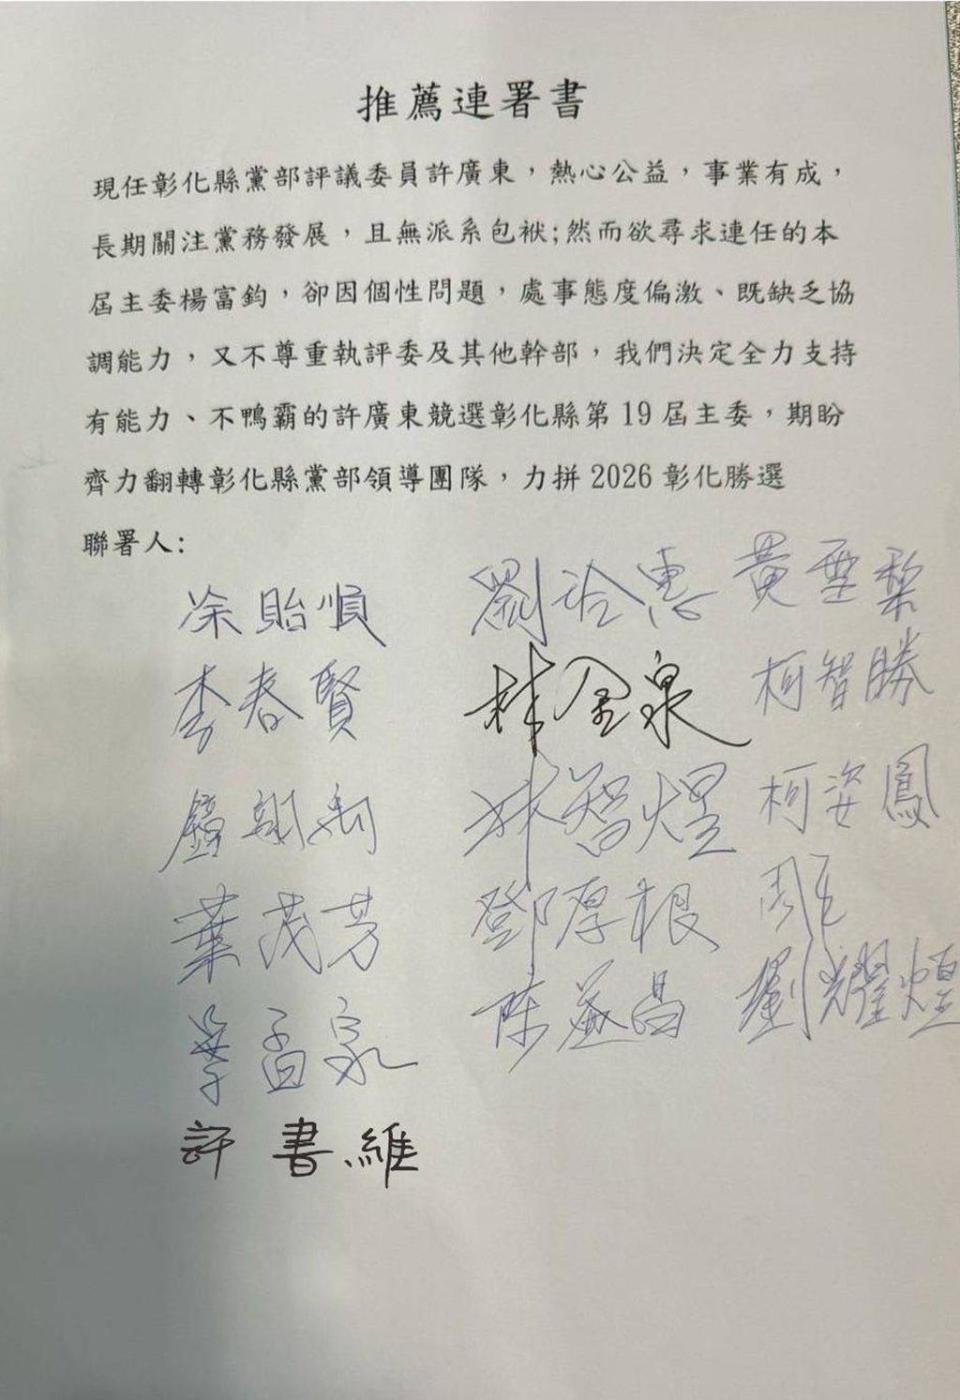 推薦連署書
現任彰化縣黨部評議委員許廣東，熱心公益，事業有成，
長期關注黨務發展，且無派系包袱;然而欲尋求連任的本
屆主委楊富鈞，卻因個性問題，處事態度偏激、既缺乏協
調能力，又不尊重執評委及其他幹部，我們決定全力支持
有能力、不鴨霸的許廣東競選彰化縣第19屆主委，期盼
齊力翻轉彰化縣黨部領導團隊，力拼2026彰化勝選
聯署人:
涂貽順 劉玲惠 黃垂
李春賢 林金泉 柯智勝
林智煜 柯姿鳳
葉茂芳 鄧厚根
陳益昌 劉耀煌
許書維